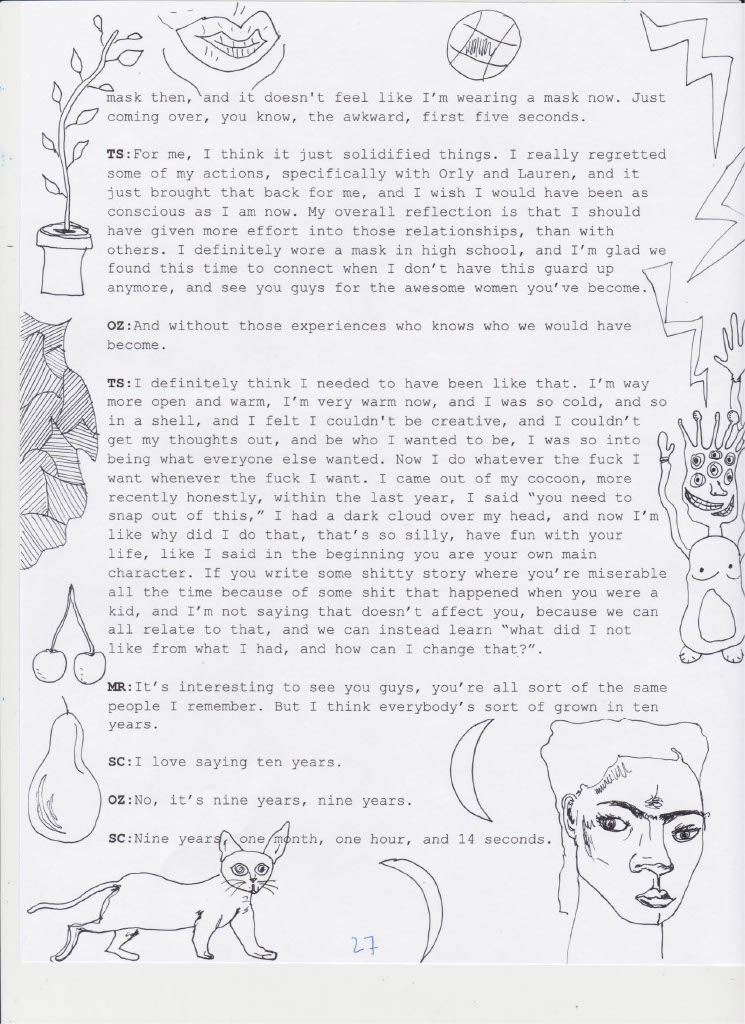 mask then, and it doesn't feel like I'm wearing a mask now. Just
coming over, you know, the awkward, first five seconds.
TS:For me, I think it just solidified things. I really regretted
some of my actions, specifically with Orly and Lauren, and it
just brought that back for me, and I wish I would have been as
conscious as I am now. My overall reflection is that I should
have given more effort into those relationships, than with
others. I definitely wore a mask in high school, and I'm glad we
found this time to connect when I don't have this guard up
anymore, and see you guys for the awesome women you've become.
OZ:And without those experiences who knows who we would have
become.
TS:I definitely think I needed to have been like that. I'm way
more open and warm, I'm very warm now, and I was so cold, and so
in a shell, and I felt I couldn't be creative, and I couldn't
get my thoughts out, and be who I wanted to be, I was so into
being what everyone else wanted. Now I do whatever the fuck I
want whenever the fuck I want. I came out of my cocoon, more
recently honestly, within the last year, I said “you need to
snap out of this,” I had a dark cloud over my head, and now I'm
like why did I do that, that's so silly, have fun with your
life, like I said in the beginning you are your own main
character. If you write some shitty story where you're miserable
all the time because of some shit that happened when you were a
kid, and I'm not saying that doesn't affect you, because we can
all relate to that, and we can instead learn “what did I not
like from what I had, and how can I change that?”.
MR:It's interesting to see you guys, you're all sort of the same
people I remember. But I think everybody's sort of grown in ten
years.
SC:I love saying ten years.
OZ:No, it's nine years, nine years.
SC:Nine years, one month, one hour, and 14 seconds.
27